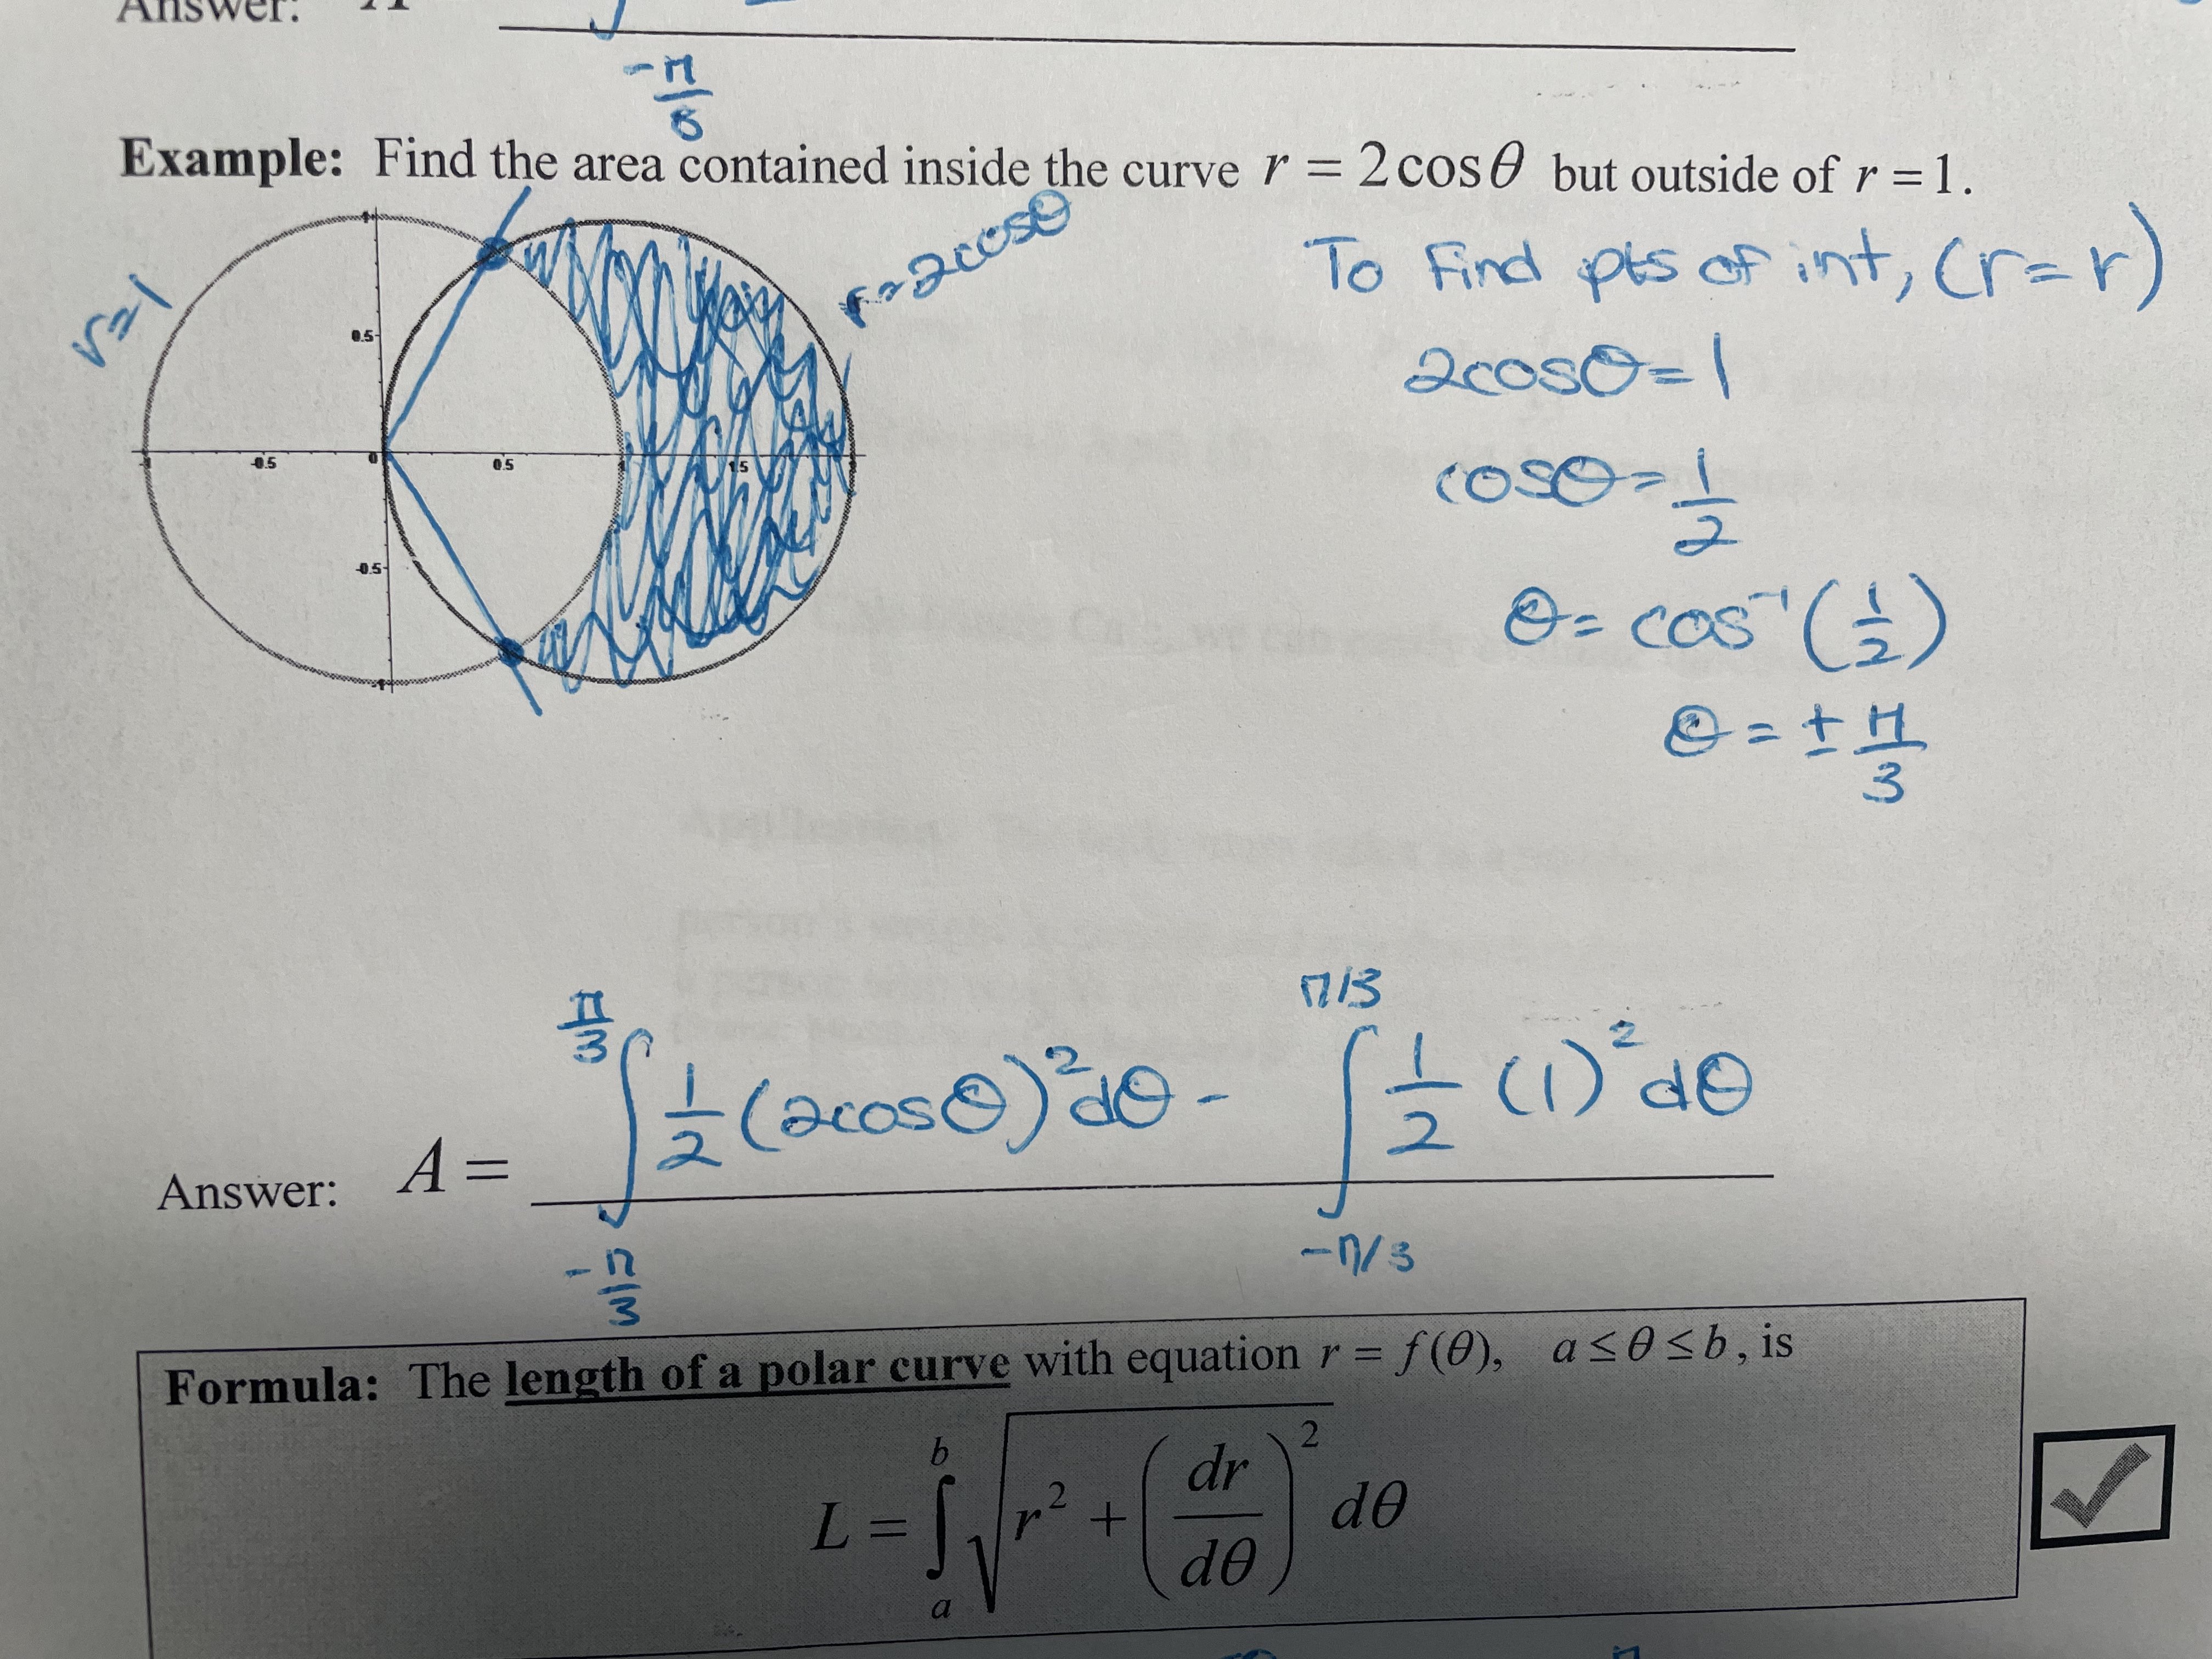 Answer: A
-π/8
Example: Find the area contained inside the curve r = 2cosθ but outside of r = 1.
r=1
r=2cosθ
1
0.5
-1 -0.5 0 0.5 1 1.5
-0.5
-1
To Find pts of int, (r=r)
2cosθ=1
cosθ=1/2
θ= cos⁻¹(1/2)
θ=±π/3
Answer: A = ∫_{-π/3}^{π/3} 1/2 (2cosθ)² dθ - ∫_{-π/3}^{π/3} 1/2 (1)² dθ
Formula: The length of a polar curve with equation r = f(θ), a ≤ θ ≤ b, is
L = ∫_a^b √(r² + (dr/dθ)²) dθ